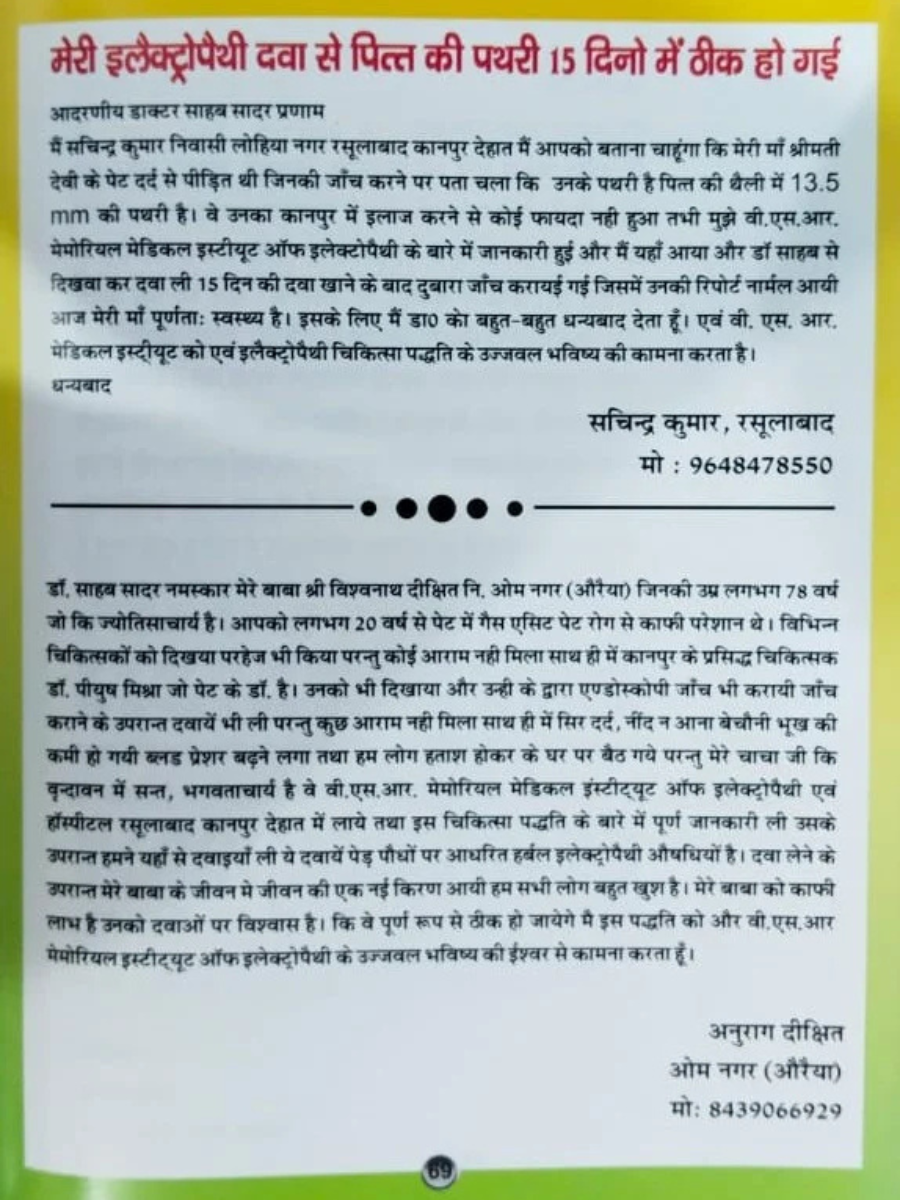 मेरी इलैक्ट्रोपैथी दवा से पित्त की पथरी 15 दिनो में ठीक हो गई
आदरणीय डाक्टर साहब सादर प्रणाम
मैं सचिन्द्र कुमार निवासी लोहिया नगर रसूलाबाद कानपुर देहात मैं आपको बताना चाहूंगा कि मेरी माँ श्रीमती
देवी के पेट दर्द से पीड़ित थी जिनकी जाँच करने पर पता चला कि उनके पथरी है पित्त की थैली में 13.5
mm की पथरी है। वे उनका कानपुर में इलाज करने से कोई फायदा नही हुआ तभी मुझे वी.एस.आर.
मेमोरियल मेडिकल इस्टीयूट ऑफ इलेक्टोपैथी के बारे में जानकारी हुई और मैं यहाँ आया और डॉ साहब से
दिखवा कर दवा ली 15 दिन की दवा खाने के बाद दुबारा जाँच करायई गई जिसमें उनकी रिपोर्ट नार्मल आयी
आज मेरी माँ पूर्णताः स्वस्थ्य है। इसके लिए मैं डा0 को बहुत-बहुत धन्यबाद देता हूँ। एवं वी. एस. आर.
मेडिकल इस्ट्रीयूट को एवं इलैक्ट्रोपैथी चिकित्सा पद्धति के उज्जवल भविष्य की कामना करता है।
धन्यबाद
सचिन्द्र कुमार, रसूलाबाद
मो : 9648478550
डॉ. साहब सादर नमस्कार मेरे बाबा श्री विश्वनाथ दीक्षित नि. ओम नगर (औरैया) जिनकी उम्र लगभग 78 वर्ष
जो कि ज्योतिसाचार्य है। आपको लगभग 20 वर्ष से पेट में गैस एसिट पेट रोग से काफी परेशान थे। विभिन्न
चिकित्सकों को दिखया परहेज भी किया परन्तु कोई आराम नही मिला साथ ही में कानपुर के प्रसिद्ध चिकित्सक
डॉ. पीयुष मिश्रा जो पेट के डॉ. है। उनको भी दिखाया और उन्ही के द्वारा एण्डोस्कोपी जाँच भी करायी जाँच
कराने के उपरान्त दवायें भी ली परन्तु कुछ आराम नही मिला साथ ही में सिर दर्द, नींद न आना बेचौनी भूख की
कमी हो गयी ब्लड प्रेशर बढ़ने लगा तथा हम लोग हताश होकर के घर पर बैठ गये परन्तु मेरे चाचा जी कि
वृन्दावन में सन्त, भगवताचार्य है वे वी.एस.आर. मेमोरियल मेडिकल इंस्टीट्यूट ऑफ इलेक्ट्रोपैथी एवं
हॉस्पीटल रसूलाबाद कानपुर देहात में लाये तथा इस चिकित्सा पद्धति के बारे में पूर्ण जानकारी ली उसके
उपरान्त हमने यहाँ से दवाइयाँ ली ये दवायें पेड़ पौधों पर आधरित हर्बल इलेक्ट्रोपैथी औषधियों है। दवा लेने के
उपरान्त मेरे बाबा के जीवन मे जीवन की एक नई किरण आयी हम सभी लोग बहुत खुश है। मेरे बाबा को काफी
लाभ है उनको दवाओं पर विश्वास है। कि वे पूर्ण रूप से ठीक हो जायेगे मै इस पद्धति को और वी.एस.आर
मेमोरियल इस्टीट्यूट ऑफ इलेक्ट्रोपैथी के उज्जवल भविष्य की ईश्वर से कामना करता हूँ।
अनुराग दीक्षित
ओम नगर (औरैया)
मोः 8439066929
69